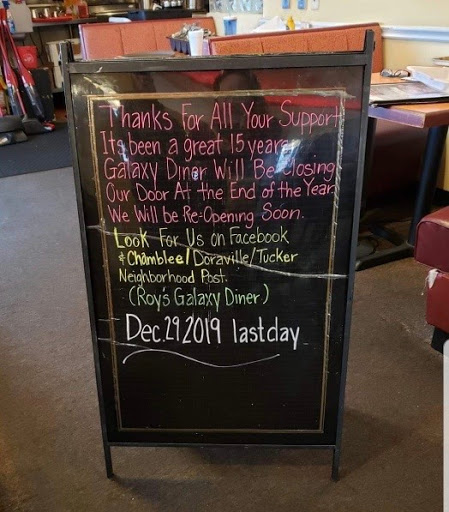 Thanks For All Your Support
Its been a great 15 years
Galaxy Diner Will Be Closing
Our Door At the End of the Year.
We Will be Re-Opening Soon.
Look For Us on Facebook
& Chamblee/Doraville/Tucker
Neighborhood Post.
(Roy's Galaxy Diner)
Dec.29 2019 last day